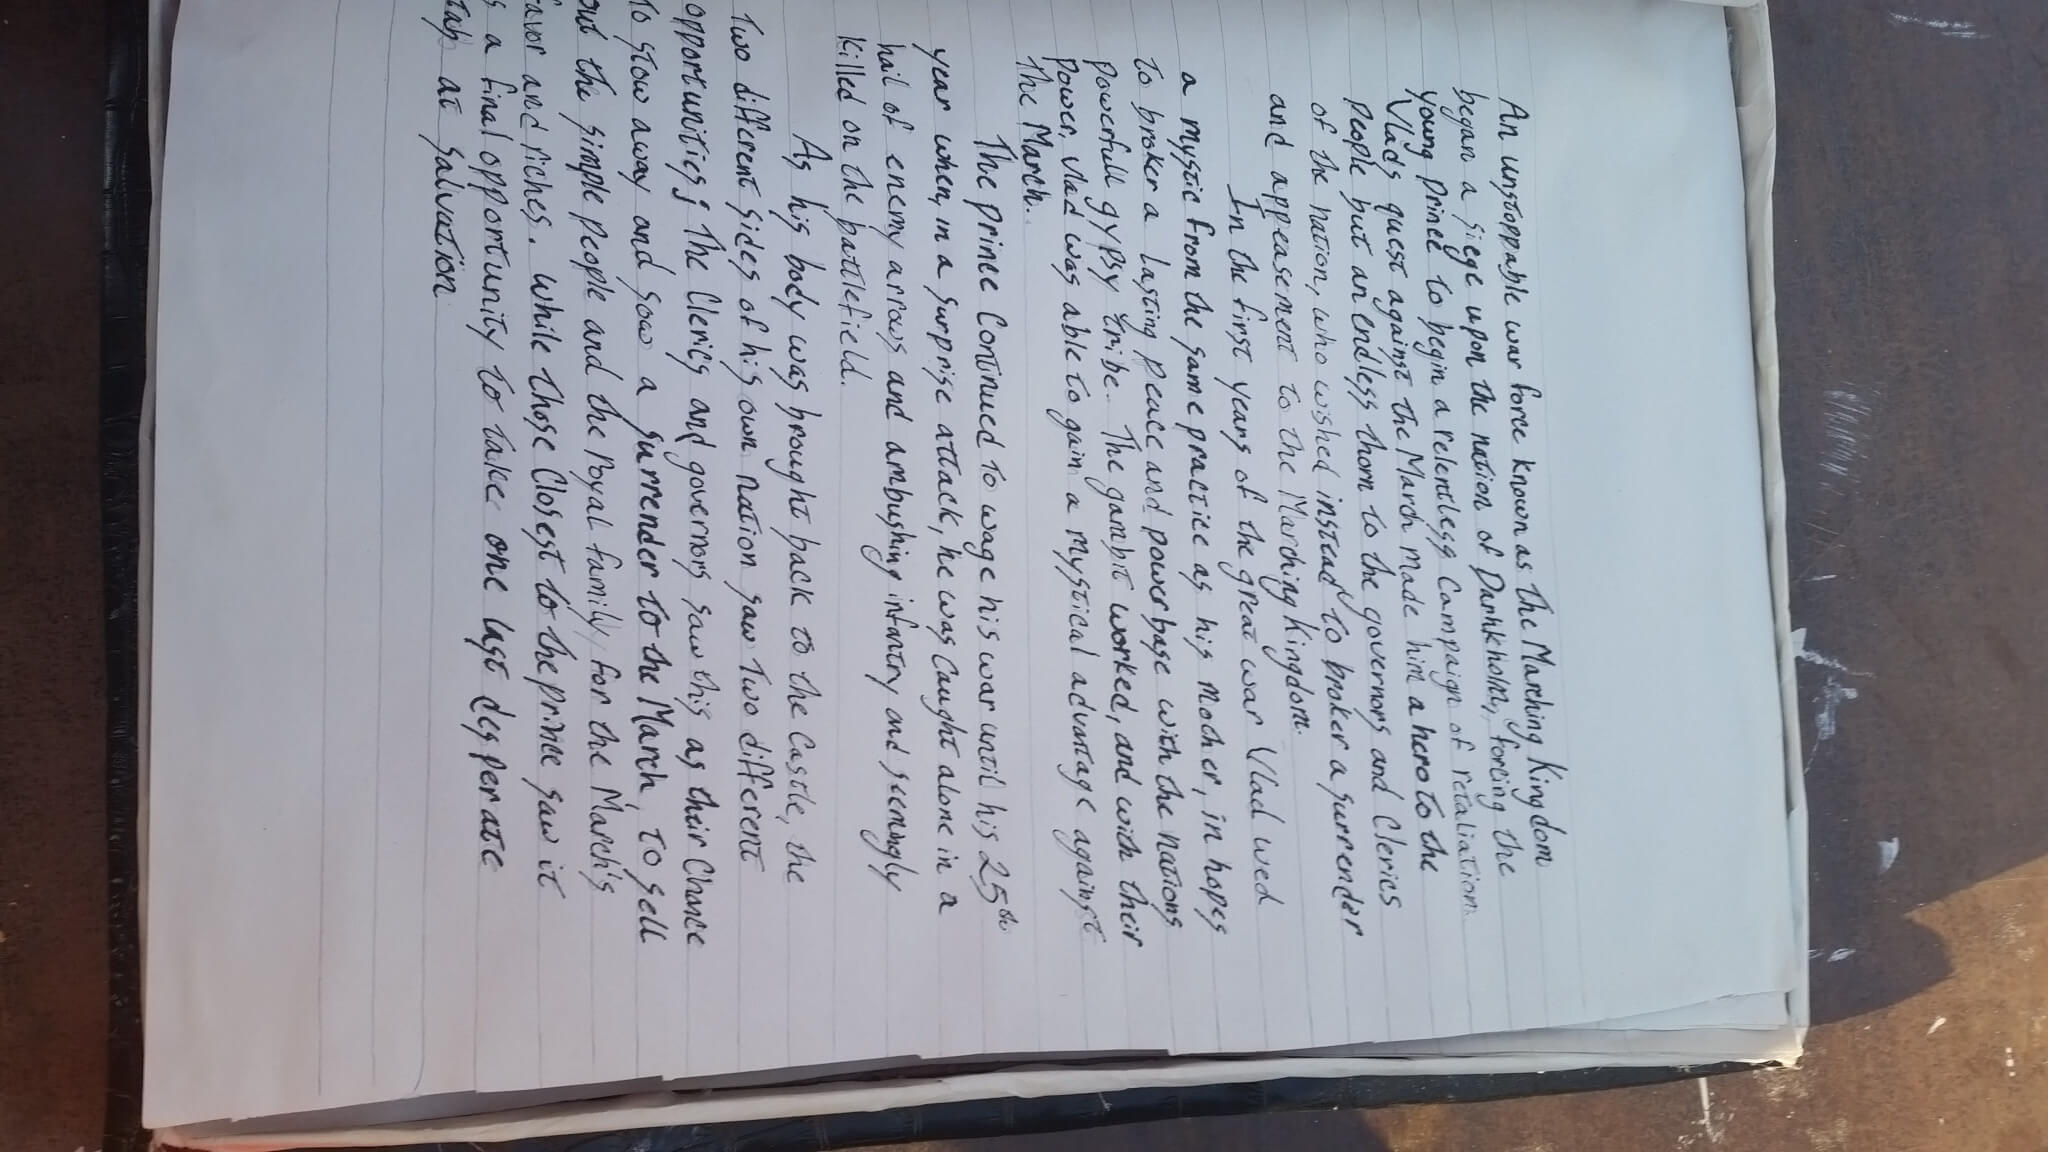 An unstoppable war force known as the Marching Kingdom
began a siege upon the nation of Darkholm, forcing the
young prince to begin a relentless campaign of retaliation.
Vlads quest against the March made him a hero to the
people but an endless thorn to the governors and Clerics
of the nation, who wished instead to broker a surrender
and appeasement to the Marching Kingdom.
In the first years of the great war Vlad wed
a mystic from the same practice as his mother, in hopes
to broker a lasting peace and power base with the nations
powerfull gypsy tribe. The gambit worked, and with their
power, Vlad was able to gain a mystical advantage against
the March.
The prince Continued to wage his war until his 25th
year when, in a surprise attack, he was caught alone in a
hail of enemy arrows and ambushing infantry and seemingly
killed on the battlefield.
As his body was brought back to the Castle, the
Two different sides of his own nation saw two different
opportunities; The Clerics and governors saw this as their Chance
to stow away and sow a surrender to the March, to sell
out the simple people and the royal family for the March's
favor and riches. While those Closest to the prince saw it
a final opportunity to take one last desperate
stab at salvation.